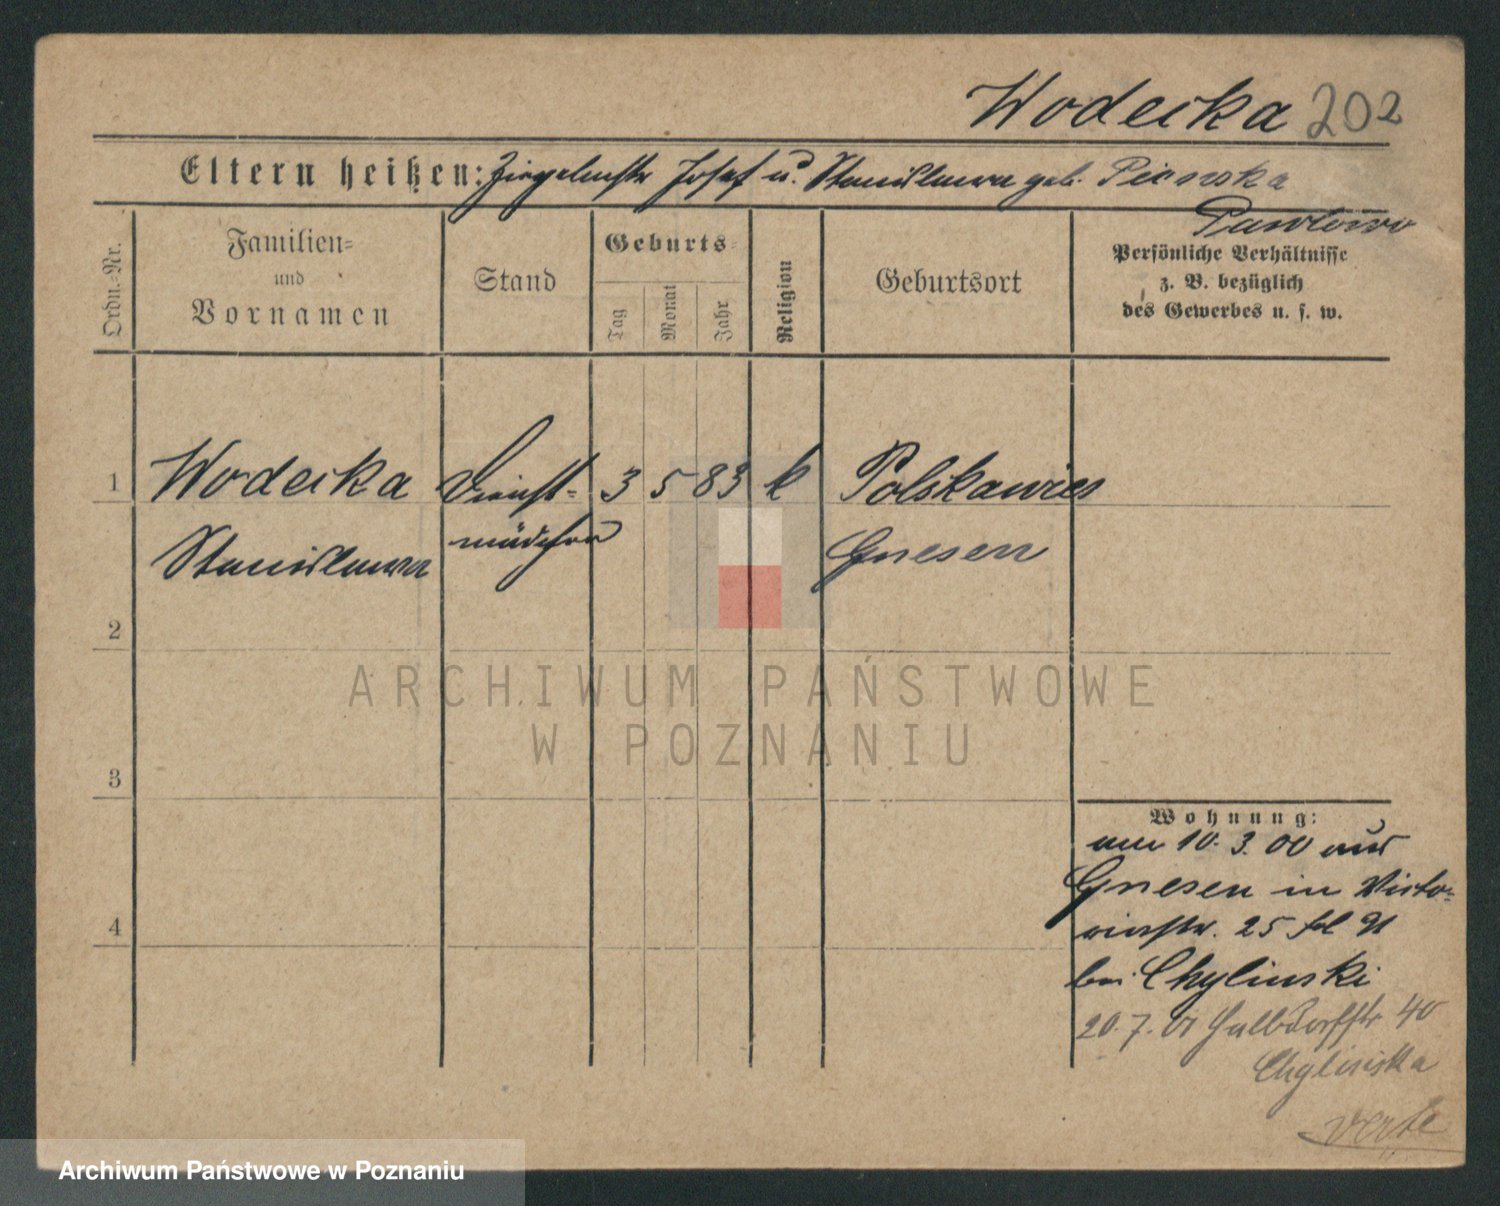 Wodecka 202
Eltern heißen: Ziegelmstr Josef u. Stanislawa geb. Pieńska
Pawlowo
Ordn.-Nr.
Familien=
und
Vornamen
Stand
Geburts=
Tag
Monat
Jahr
Religion
Geburtsort
Persönliche Verhältnisse
z. B. bezüglich
des Gewerbes u. s. w.
1 Wodecka Dienst= 3 5 83 k Polskawies
Stanislawa mädchen Gnesen
2
3
4
Wohnung:
am 10. 3. 00 aus
Gnesen in Victo=
riastr. 25
bei Chylinski
20. 7. 01 Halbdorfstr 40
Chylinska
verte
ARCHIWUM PAŃSTWOWE
W POZNANIU
Archiwum Państwowe w Poznaniu